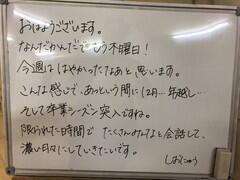 おはようございます。
なんだかんだでもう木曜日!
今週ははやかったなあと思います。
こんな感じで、あっという間に12月…年越し…
そして卒業シーズン突入ですね。
限られた時間でたくさんみんなと会話して、
濃い日々にしていきたいです。